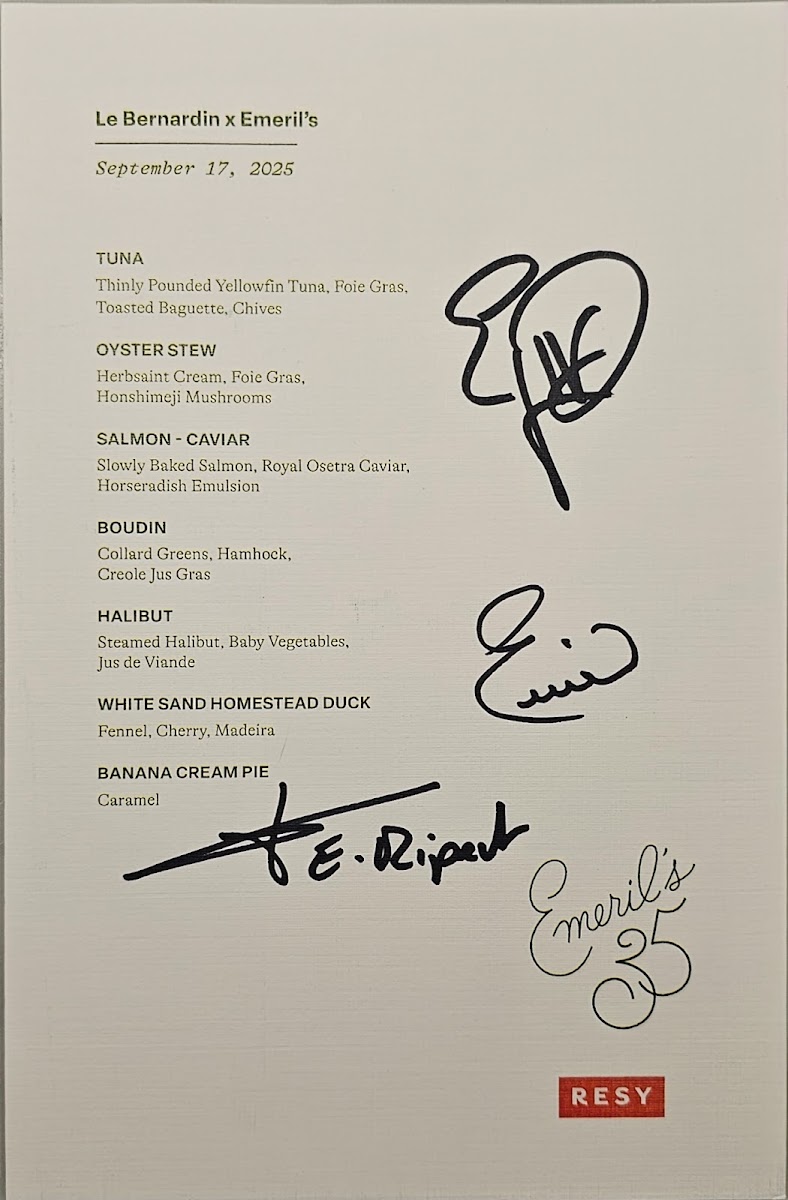 Le Bernardin x Emeril's
September 17, 2025
TUNA
Thinly Pounded Yellowfin Tuna, Foie Gras,
Toasted Baguette, Chives
OYSTER STEW
Herbsaint Cream, Foie Gras,
Honshimeji Mushrooms
SALMON - CAVIAR
Slowly Baked Salmon, Royal Osetra Caviar,
Horseradish Emulsion
BOUDIN
Collard Greens, Hamhock,
Creole Jus Gras
HALIBUT
Steamed Halibut, Baby Vegetables,
Jus de Viande
WHITE SAND HOMESTEAD DUCK
Fennel, Cherry, Madeira
BANANA CREAM PIE
Caramel
E. Ripert
Emeril's
35
RESY